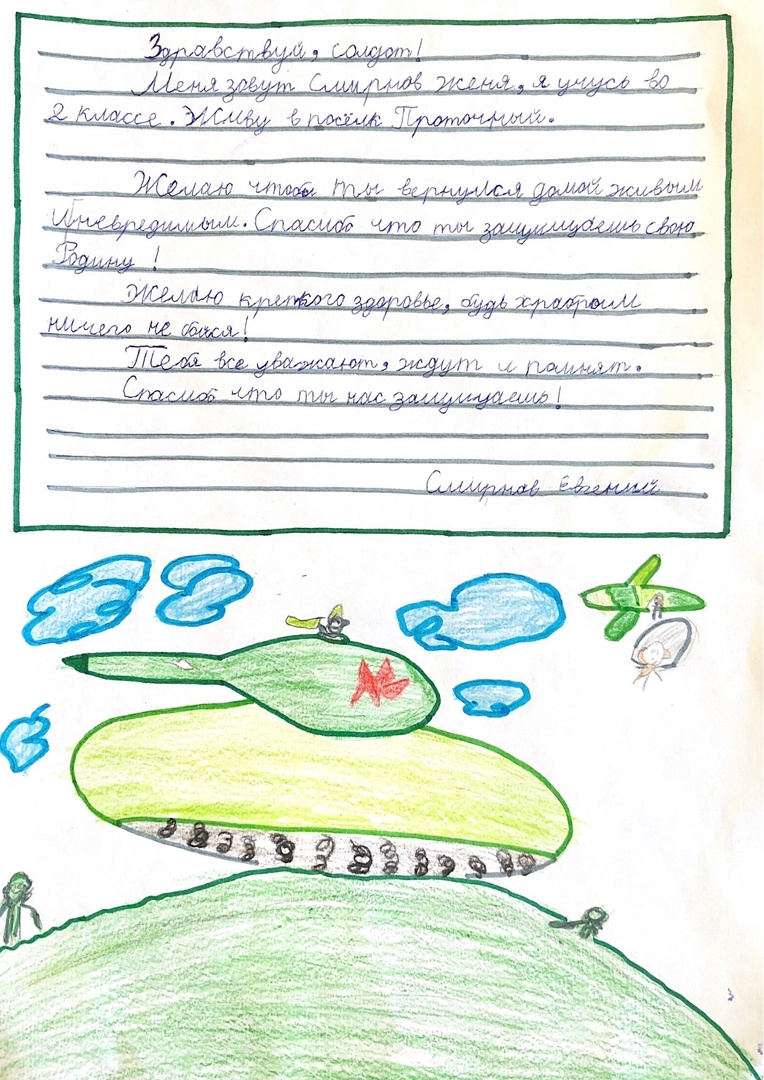 Здравствуй, солдат!
Меня зовут Смирнов Женя, я учусь во
2 классе. Живу в посёлк Проточный.
Желаю чтобы ты вернулся домой живым
и невредимым. Спасибо что ты защищаешь свою
Родину !
Желаю крепкого здоровье, будь храбрым
ничего не бойся!
Тебя все уважают, ждут и помнят.
Спасибо что ты нас защищаешь!
Смирнов Евгений